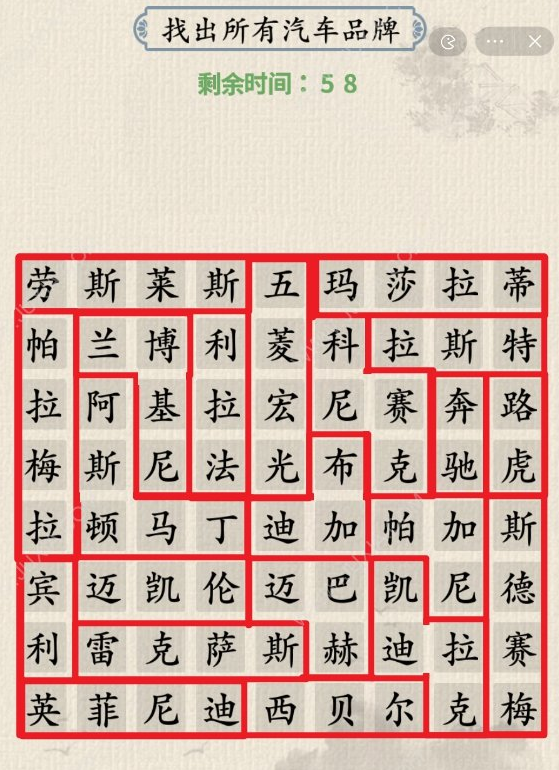 找出所有汽车品牌
剩余时间：58
劳斯莱斯五玛莎拉蒂
帕兰博利菱科拉斯特
拉阿基拉宏尼赛奔路
梅斯尼法光布克驰虎
拉顿马丁迪加帕加斯
宾迈凯伦迈巴凯尼德
利雷克萨斯赫迪拉赛
英菲尼迪西贝尔克梅